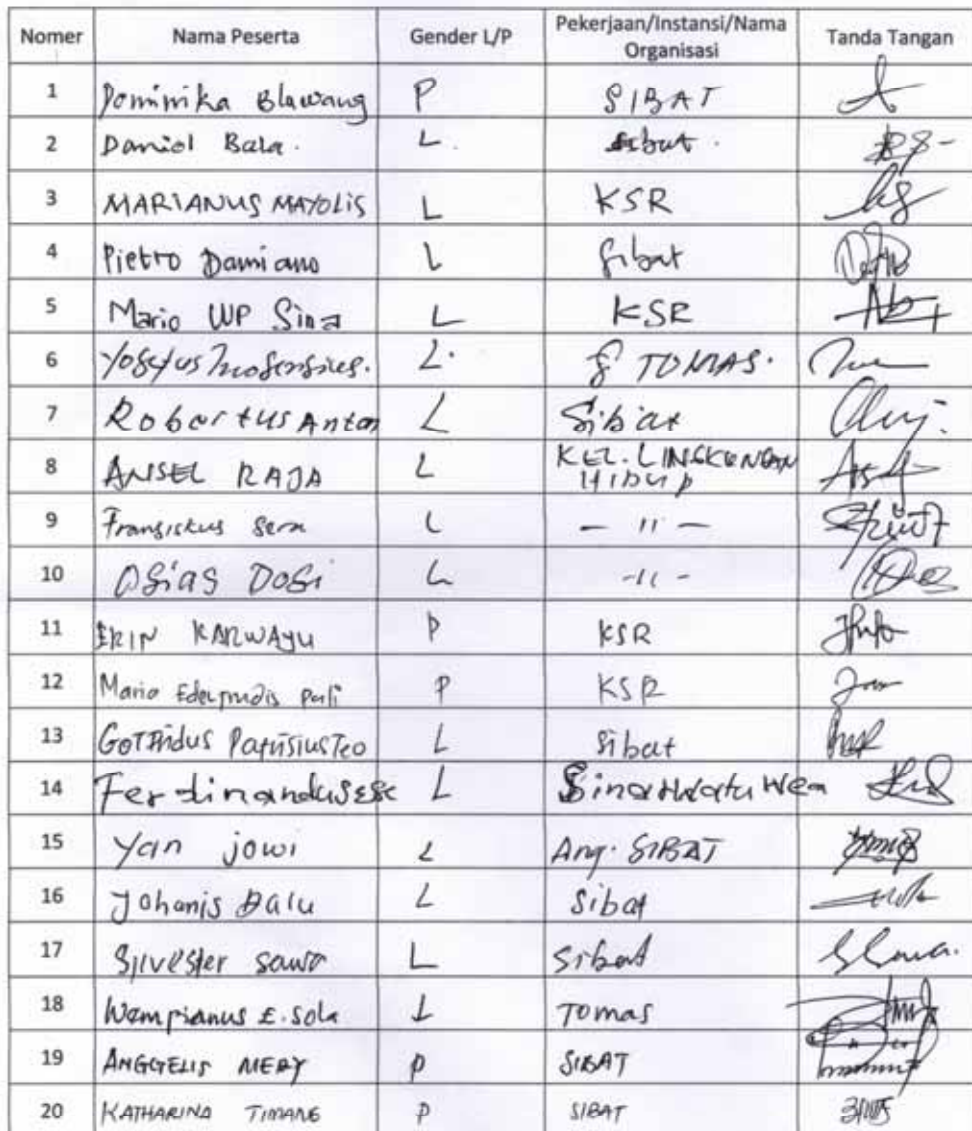 Nomer Nama Peserta Gender L/P Pekerjaan/Instansi/Nama Organisasi Tanda Tangan
1 Dominika Blawang P SIBAT
2 Daniel Bala. L. sibat.
3 MARIANUS MAYOLIS L KSR
4 Pietro Damiano L Sibat
5 Mario WP Sina L KSR
6 L. TOMAS.
7 Robertus Anton L Sibat
8 ANSEL RAJA L KEL. LINGKUNGAN HIDUP
9 Fransiskus Sera L — 11 —
10 Osias Dosi L -11-
11 ERIN KARWAYU P KSR
12 Maria pali P KSR
13 Patrisius Teo L Sibat
14 Ferdinandus ESE L
15 Yan jowi L Ang. SIBAT
16 Johanis Balu L Sibat
17 Silvester sawa L Sibat
18 Wempianus E. Sola L Tomas
19 ANGGELIS MERY P SIBAT
20 KATHARINA TIMANG P SIBAT